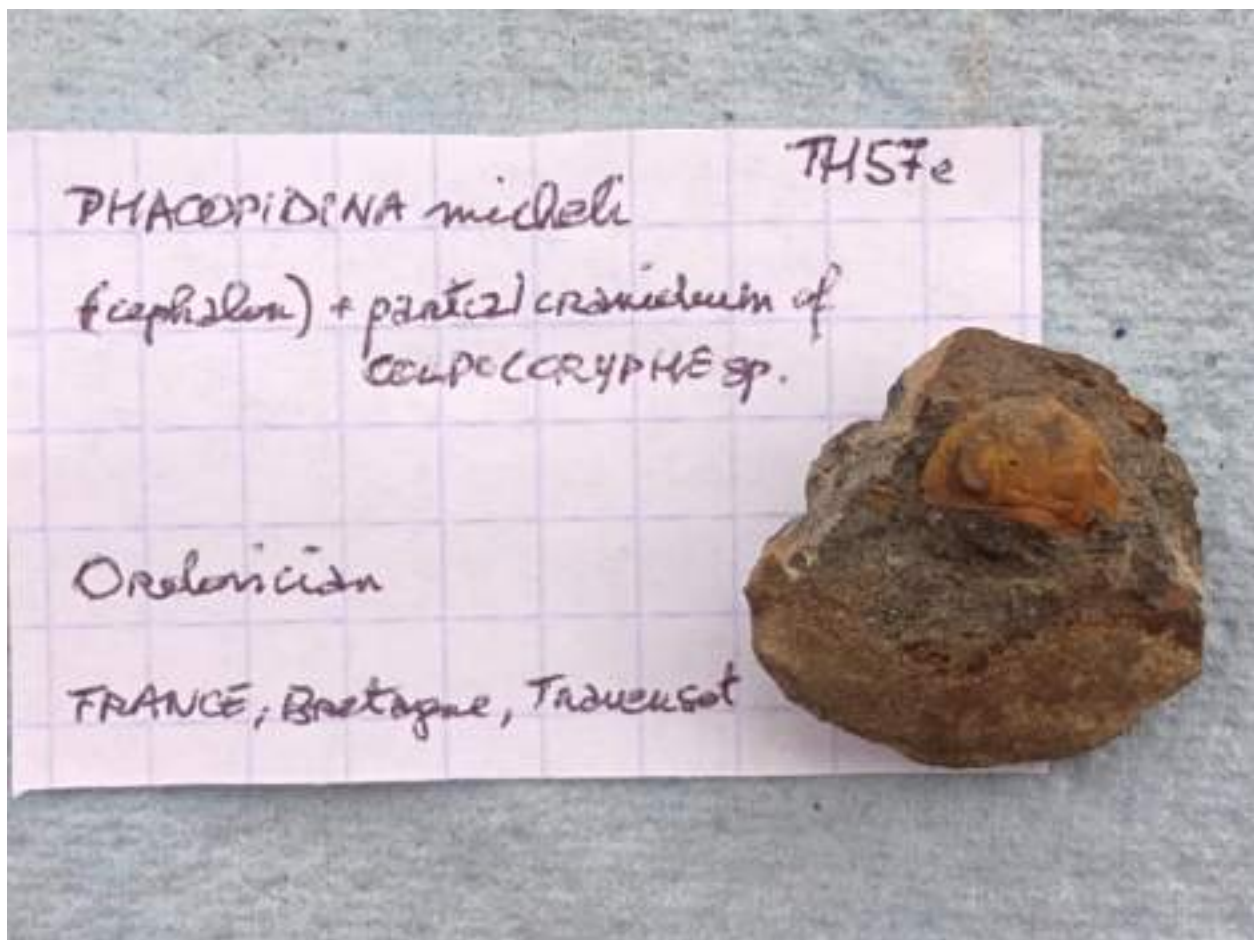 TH57e
PHACOPIDINA micheli
(cephalon) + partial cranidium of
COLPOCORYPHE sp.
Ordovician
FRANCE, Bretagne, Traveusot